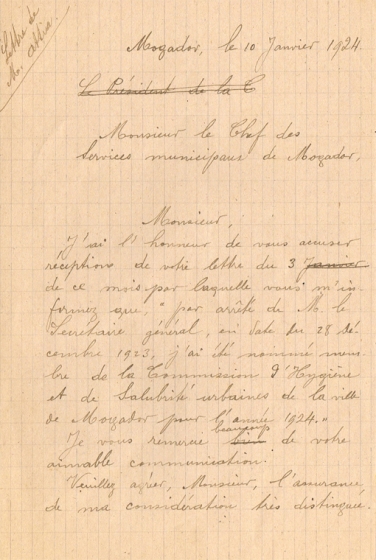 Lettre de
M. Attia.
Mogador, le 10 Janvier 1924.
Le Président de la C
Monsieur le Chef des
Services municipaux de Mogador,
Monsieur,
J'ai l'honneur de vous accuser
réception de votre lettre du 3 Janvier
de ce mois par laquelle vous m'in
formez que, "par arrêté de M. le
Secrétaire général, en date du 28 dé
cembre 1923, j'ai été nommé mem
bre de la Commission d'Hygiène
et de Salubrité urbaines de la ville
de Mogador pour l'année 1924."
beaucoup
Je vous remercie bien de votre
aimable communication.
Veuillez agréer, Monsieur, l'assurance
de ma considération très distinguée.